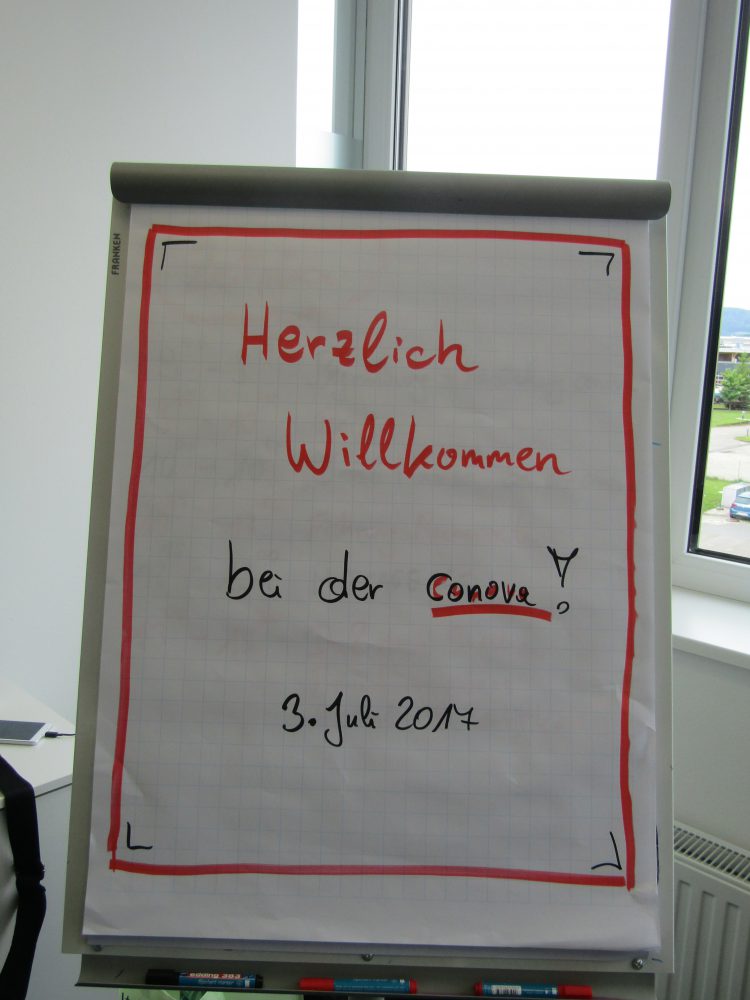 FRANKEN
Herzlich
Willkommen
bei der conova!
3. Juli 2017
edding 383